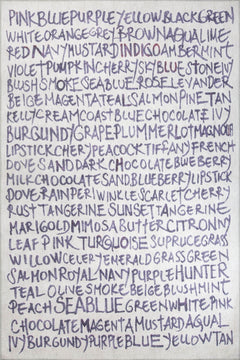 PINKBLUEPURPLEYELLOWBLACKGREEN
WHITEORANGEGREYBROWNAQUALIME
REDNAVYMUSTARDINDIGOAMBERMINT
VIOLETPUMPKINCHERRYSKYBLUESTONEIVY
BLUSHSMOKESEABLUEROSELEVANDER
BEIGEMAGENTATEALSALMONPINETAN
KELLYCREAMCOASTBLUECHOCOLATEIVY
BURGUNDYGRAPEPLUMMERLOTMAGNOLIA
LIPSTICKCHERYPEACOCKTIFFANYFRENCH
DOVESANDDARKCHOCOLATEBLUEBERRY
MILKCHOCOLATESANDBLUEBERRYLIPSTICK
DOVERAINPERIWINKLESCARLETCHERRY
RUSTTANGERINESUNSETTANGERINE
MARIGOLDMIMOSABUTTERCITRONNY
LEAFPINKTURQUOISESUPRUCEGRASS
WILLOWCELERYEMERALDGRASSGREEN
SALMONROYALNAVYPURPLEHUNTER
TEALOLIVESMOKEBEIGEBLUSHMINT
PEACHSEABLUEGREENWHITEPINK
CHOCOLATEMAGENTAMUSTARDAQUAL
IVYBURGUNDYPURPLEBLUEYELLOWTAN